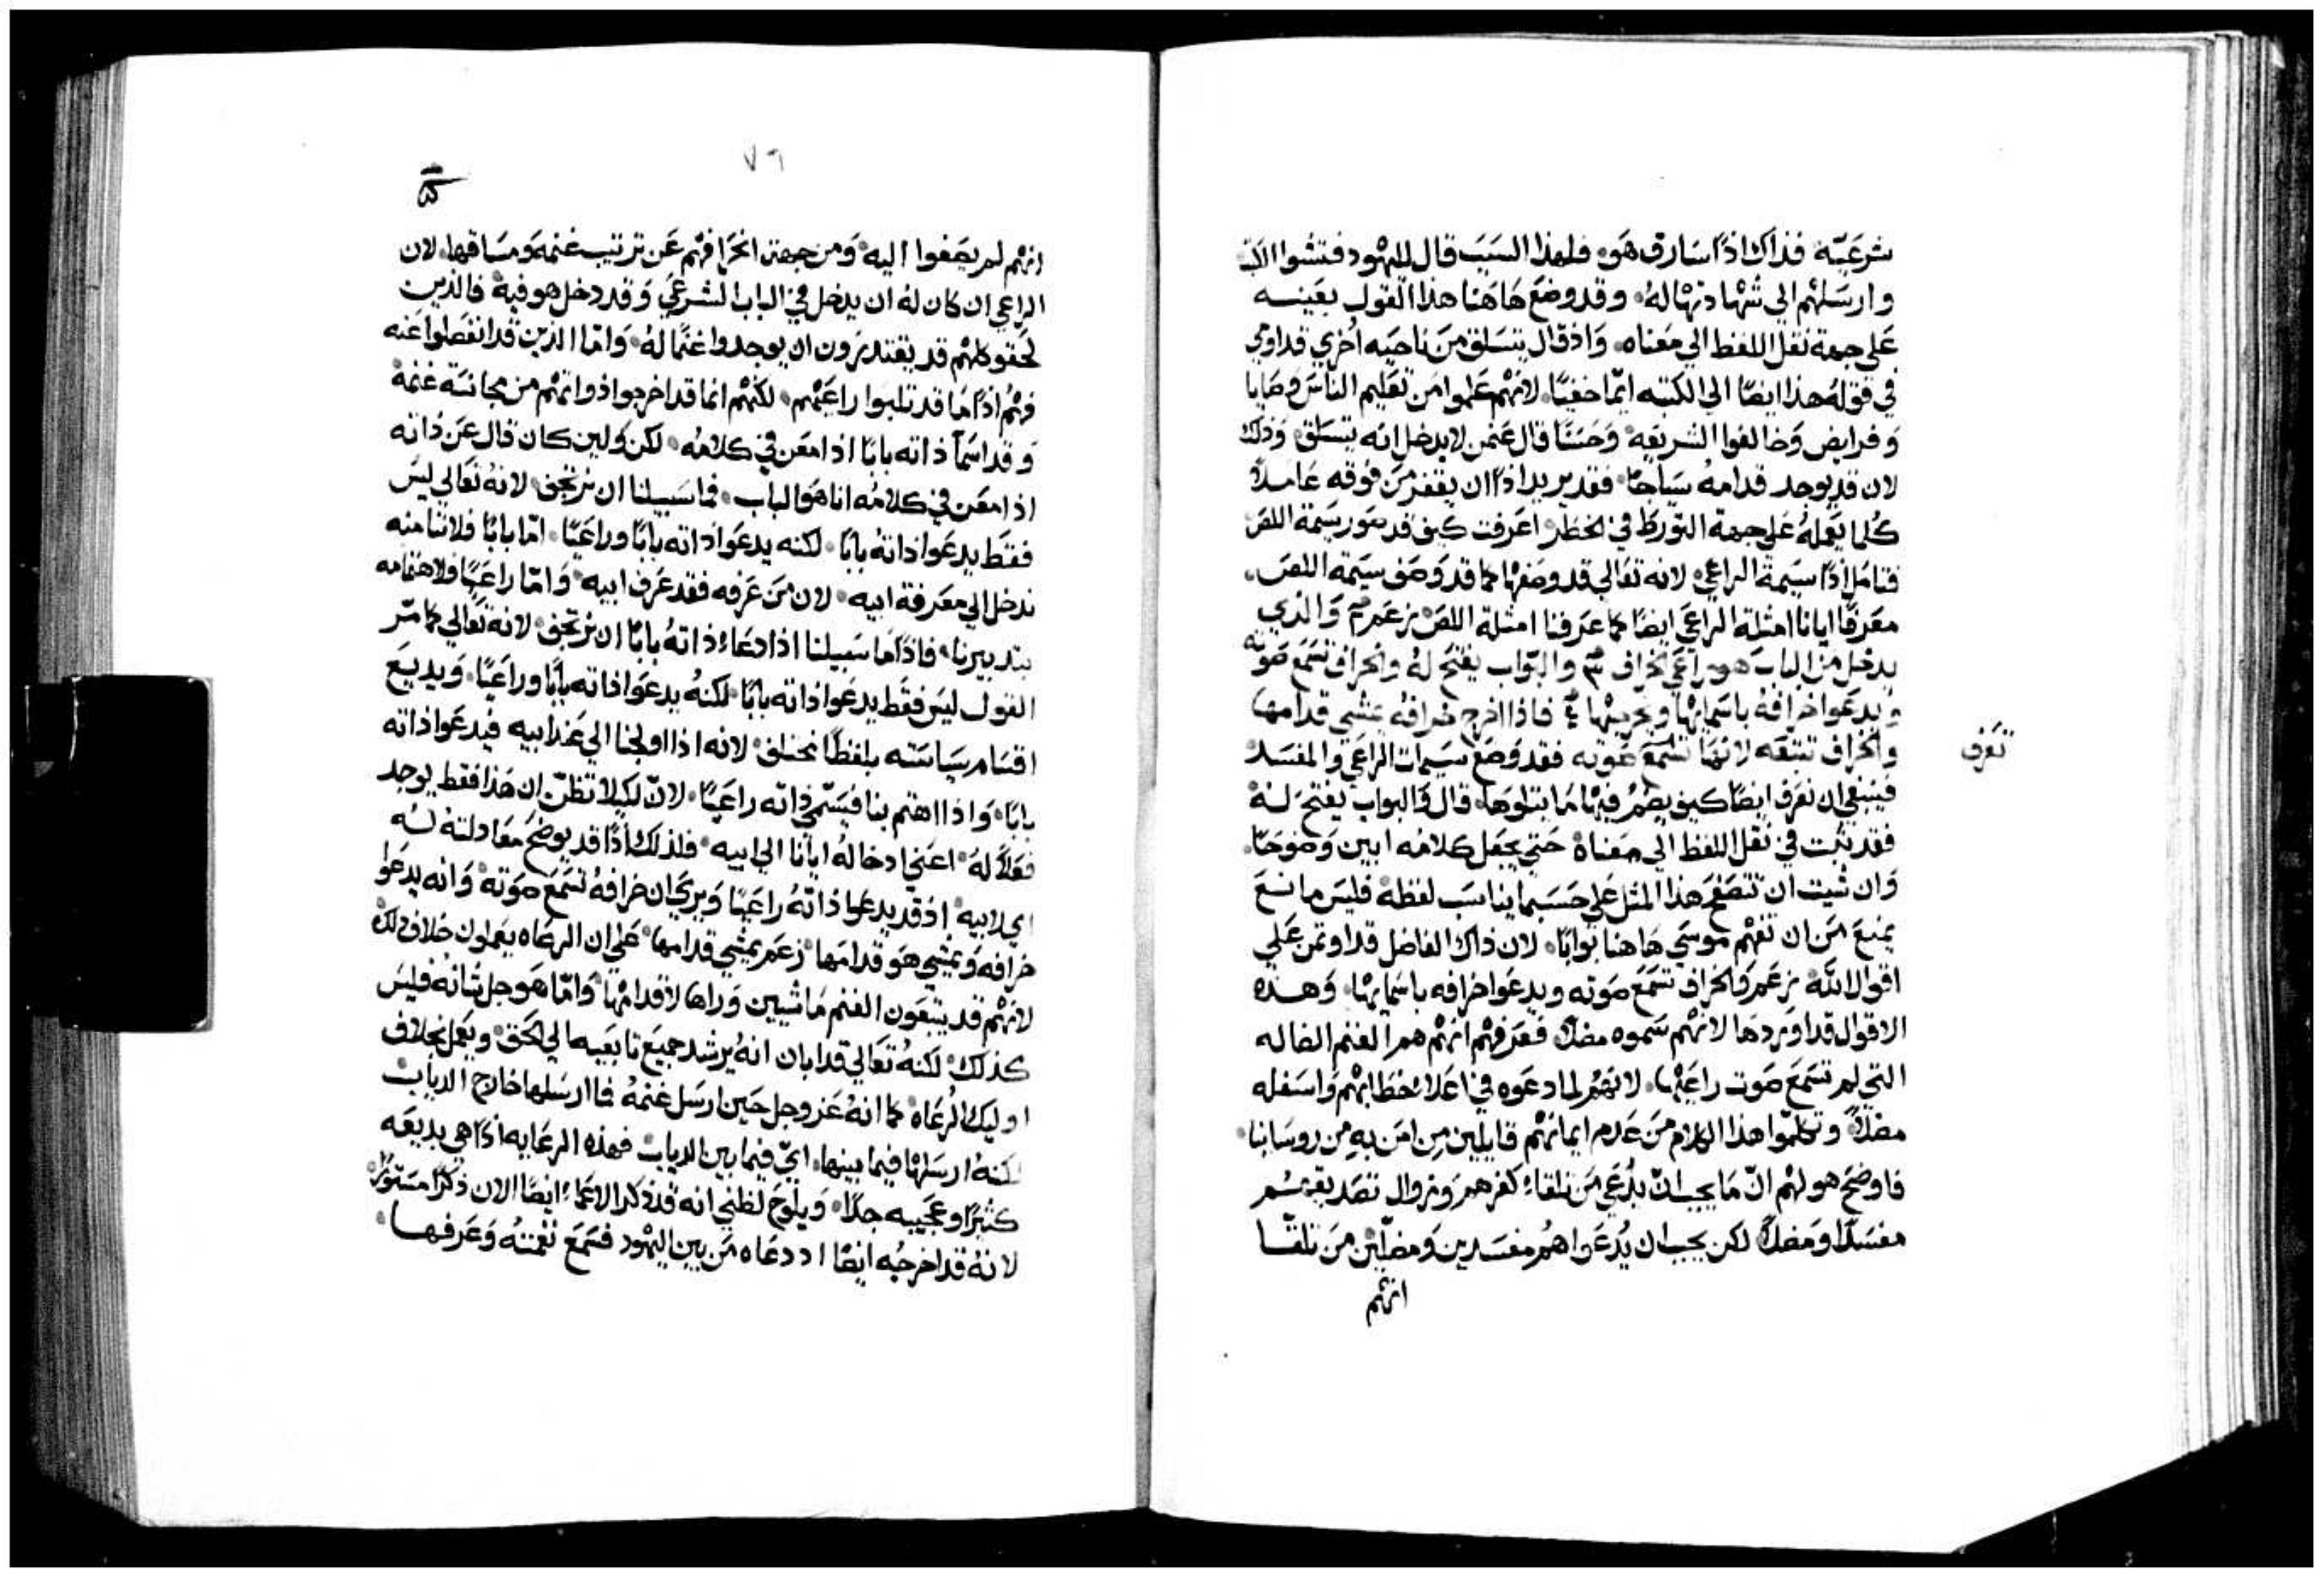 شرعيّه فذاك اذًا سارق هو۰ فلهذا السبب قال لليهود فتشوا الكتب
وارسلهم الي شهادتها له۰ وقد وضع هاهنا هذا القول بعينه
علي جهة نقل اللفظ الي معناه۰ واذ قال يتسلق من ناحيه اخري قد اومي
في قوله هذا ايضًا الي الكتبه ايما خفيًا۰ لانهم علموا من تعليم الناس وصايا
وفرايض وخالفوا الشريعه۰ وحسنًا قال عن من لا يدخل انه يتسلق۰ وذلك
لان قد يوجد قدامه سياجًا۰ فقد يريد اذًا ان يقفز من فوقه عاملاً
كلما يعمله علي جهة التورط في الخطر۰ اعرفت كيف قد صور سيمة اللص
فتامل اذًا سيمة الراعي۰ لانه تعالي قد وصفها كما قد وصف سيمة اللص۰
معرفًا ايانا امثلة الراعي ايضًا كما عرفنا امثلة اللص زعم والذي
يدخل من الباب هو راعي الخراف والبواب يفتح له والخراف تسمع صوته
ويدعوا خرافه باسمايها ويخرجها فاذا اخرج خرافه يمشي قدامها
والخراف تتبعه لانها تسمع صوته فقد وضع سيمات الراعي والمفسد
تعرف
فينبغي ان نعرف ايضًا كيف يضم فيها ما يتلوها۰ قال والبواب يفتح له
فقد ثبت في نقل اللفظ الي معناه حتي يجعل كلامه ابين وضوحًا۰
وان شيت ان تتصفح هذا المثل علي حسبما يناسب لفظه فليس مانع
يمنع من ان تفهم موسي هاهنا بوابًا۰ لان ذاك الفاضل قد اوتمن علي
اقوال الله۰ زعم والخراف تسمع صوته ويدعوا خرافه باسمايها۰ وهذه
الاقوال قد اوردها لانهم سموه مضلاً۰ فعرفهم انهم هم الغنم الضاله
التي لم تسمع صوت راعيها۰ لانهم لما دعوه في اعلا خطابهم واسفله
مضلاً وتكلموا هذا الكلام من عدم ايمانهم قايلين من امن به من روسانا۰
فاوضح هو لهم ان ما يجب ان يدعي من تلقاء كفرهم وزوال تصديقهم
مفسدًا ومضلاً لكن يجب ان يدعوا هم مفسدين ومضلين من تلقا
انهم
٧٦
انهم لم يصغوا اليه۰ ومن جهة انحرافهم عن ترتيب غنمه ومساقها۰ لان
الراعي ان كان له ان يدخل في الباب الشرعي وقد دخل هو فيه۰ فالذين
لحقوه كلهم قد يقتدرون ان يوجدوا غنمًا له۰ واما الذين قد انفصلوا عنه
فهم اذًا ما قد ثلبوا راعيهم۰ لكنهم انما قد اخرجوا ذواتهم من مجانسة غنمه
وقد اسما ذاته بابًا اذ امعن في كلامه۰ لكن ولين كان قال عن ذاته
اذ امعن في كلامه انا هو الباب۰ فما سبيلنا ان نرتجف۰ لانه تعالي ليس
فقط يدعوا ذاته بابًا۰ لكنه يدعوا ذاته بابًا وراعيًا۰ اما بابًا فلاننا منه
ندخل الي معرفة ابيه۰ لان من عرفه فقد عرف ابيه۰ واما راعيًا فلاهتمامه
بتدبيرنا۰ فاذًا ما سبيلنا اذا دعاء ذاته بابًا ان نرتجف۰ لانه تعالي كما مر
القول ليس فقط يدعوا ذاته بابًا۰ لكنه يدعوا ذاته بابًا وراعيًا۰ ويديع
اقسام سياسته بلفظًا مختلف۰ لانه اذا اولجنا الي عند ابيه فيدعوا ذاته
بابًا۰ واذا اهتم بنا فيسمي ذاته راعيًا۰ لان لكيلا تظن ان هذا فقط يوجد
فعلاً له۰ اعني ادخاله ايانا الي ابيه۰ فلذلك اذًا قد يوضح معادلته له
اي لابيه۰ اذ قد يدعوا ذاته راعيًا ويري ان خرافه تسمع صوته۰ وانه يدعوا
خرافه ويمشي هو قدامها۰ زعم يمشي قدامها۰ علي ان الرعاه يعملون خلاف ذلك
لانهم قد يتبعون الغنم ماشيين وراها لا قدامها۰ واما هو جل شانه فليس
كذلك۰ لكنه تعالي قد ابان انه يرشد جميع تابعيه الي الحق۰ ويعمل بخلاف
اوليك الرعاه۰ كما انه عز وجل حين ارسل غنمه فما ارسلها خارج الدياب
لكنه ارسلها فيما بينها۰ اي فيما بين الدياب فهذه الرعايه اذًا هي بديعه
كثيرًا وعجيبه جدًا۰ ويلوح لظني انه قد ذكر الاعماء ايضًا الان ذكرًا مستورًا
لانه قد اخرجه ايضًا اذ دعاه من بين اليهود فسمع نغمته وعرفها۰